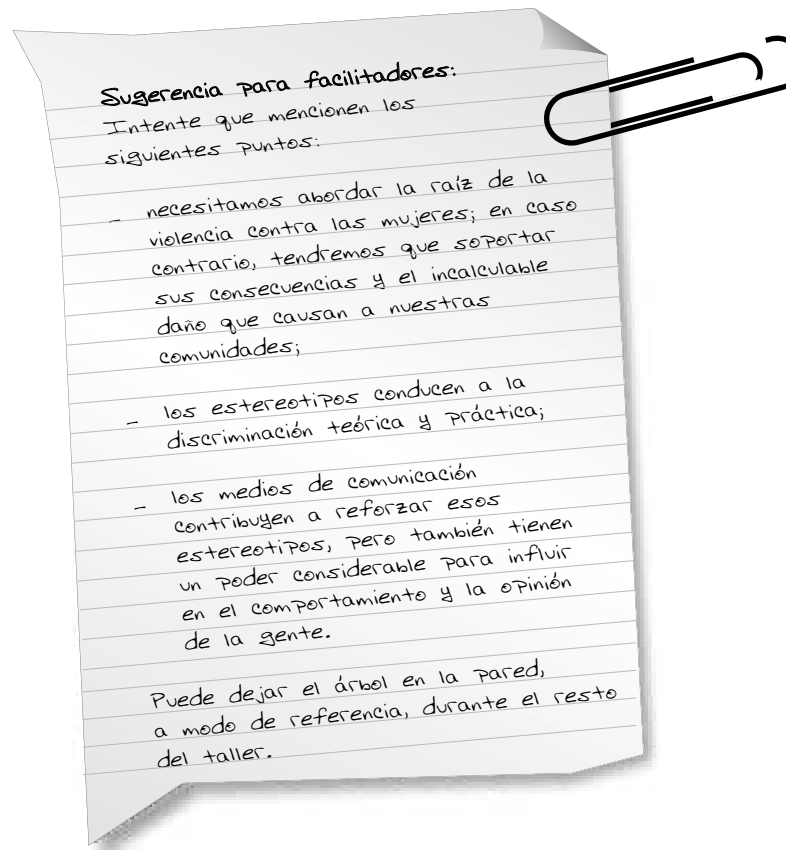 Sugerencia para facilitadores:
Intente que mencionen los
siguientes puntos:
- necesitamos abordar la raíz de la
violencia contra las mujeres; en caso
contrario, tendremos que soportar
sus consecuencias y el incalculable
daño que causan a nuestras
comunidades;
- los estereotipos conducen a la
discriminación teórica y práctica;
- los medios de comunicación
contribuyen a reforzar esos
estereotipos, pero también tienen
un poder considerable para influir
en el comportamiento y la opinión
de la gente.
Puede dejar el árbol en la pared,
a modo de referencia, durante el resto
del taller.